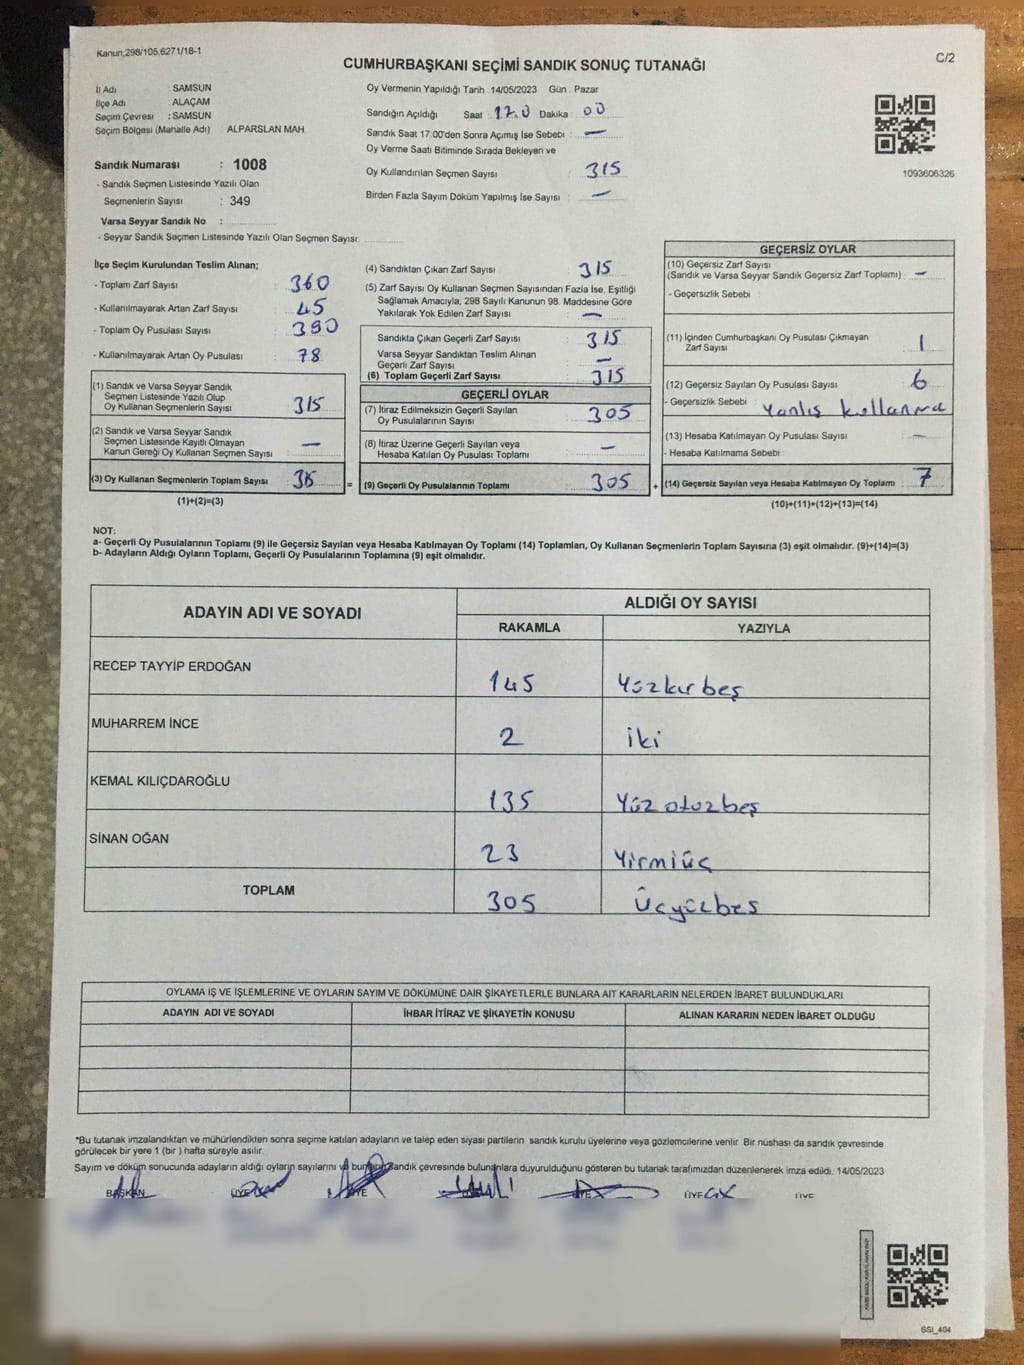 Kanun,298/105,6271/18-1
CUMHURBAŞKANI SEÇİMİ SANDIK SONUÇ TUTANAĞI
C/2
İl Adı : SAMSUN
İlçe Adı : ALAÇAM
Seçim Çevresi : SAMSUN
Seçim Bölgesi (Mahalle Adı) ALPARSLAN MAH.
Sandık Numarası : 1008
- Sandık Seçmen Listesinde Yazılı Olan
Seçmenlerin Sayısı : 349
Varsa Seyyar Sandık No :
- Seyyar Sandık Seçmen Listesinde Yazılı Olan Seçmen Sayısı:
Oy Vermenin Yapıldığı Tarih 14/05/2023 Gün : Pazar
Sandığın Açıldığı Saat : 17.0 Dakika : 00
Sandık Saat 17:00'den Sonra Açımış İse Sebebi : —
Oy Verme Saati Bitiminde Sırada Bekleyen ve
Oy Kullandırılan Seçmen Sayısı : 315
Birden Fazla Sayım Döküm Yapılmış İse Sayısı : —
1093606326
İlçe Seçim Kurulundan Teslim Alınan;
- Toplam Zarf Sayısı 360
- Kullanılmayarak Artan Zarf Sayısı 45
- Toplam Oy Pusulası Sayısı 390
- Kullanılmayarak Artan Oy Pusulası 78
(1) Sandık ve Varsa Seyyar Sandık
Seçmen Listesinde Yazılı Olup
Oy Kullanan Seçmenlerin Sayısı 315
(2) Sandık ve Varsa Seyyar Sandık
Seçmen Listesinde Kayıtlı Olmayan
Kanun Gereği Oy Kullanan Seçmen Sayısı —
(3) Oy Kullanan Seçmenlerin Toplam Sayısı 315 =
(1)+(2)=(3)
(4) Sandıktan Çıkan Zarf Sayısı 315
(5) Zarf Sayısı Oy Kullanan Seçmen Sayısından Fazla İse, Eşitliği
Sağlamak Amacıyla, 298 Sayılı Kanunun 98. Maddesine Göre
Yakılarak Yok Edilen Zarf Sayısı —
Sandıkta Çıkan Geçerli Zarf Sayısı 315
Varsa Seyyar Sandıktan Teslim Alınan
Geçerli Zarf Sayısı —
(6) Toplam Geçerli Zarf Sayısı 315
GEÇERLİ OYLAR
(7) İtiraz Edilmeksizin Geçerli Sayılan
Oy Pusulalarının Sayısı 305
(8) İtiraz Üzerine Geçerli Sayılan veya
Hesaba Katılan Oy Pusulası Toplamı —
(9) Geçerli Oy Pusulalarının Toplamı 305 +
GEÇERSİZ OYLAR
(10) Geçersiz Zarf Sayısı
(Sandık ve Varsa Seyyar Sandık Geçersiz Zarf Toplamı) —
- Geçersizlik Sebebi
(11) İçinden Cumhurbaşkanı Oy Pusulası Çıkmayan
Zarf Sayısı 1
(12) Geçersiz Sayılan Oy Pusulası Sayısı 6
- Geçersizlik Sebebi yanlış kullanma
(13) Hesaba Katılmayan Oy Pusulası Sayısı —
- Hesaba Katılmama Sebebi
(14) Geçersiz Sayılan veya Hesaba Katılmayan Oy Toplamı 7
(10)+(11)+(12)+(13)=(14)
NOT:
a- Geçerli Oy Pusulalarının Toplamı (9) ile Geçersiz Sayılan veya Hesaba Katılmayan Oy Toplamı (14) Toplamları, Oy Kullanan Seçmenlerin Toplam Sayısına (3) eşit olmalıdır. (9)+(14)=(3)
b- Adayların Aldığı Oyların Toplamı, Geçerli Oy Pusulalarının Toplamına (9) eşit olmalıdır.
ADAYIN ADI VE SOYADI
ALDIĞI OY SAYISI
RAKAMLA YAZIYLA
RECEP TAYYİP ERDOĞAN 145 Yüzkırbeş
MUHARREM İNCE 2 iki
KEMAL KILIÇDAROĞLU 135 Yüzotuzbeş
SİNAN OĞAN 23 Yirmiüç
TOPLAM 305 Üçyüzbeş
OYLAMA İŞ VE İŞLEMLERİNE VE OYLARIN SAYIM VE DÖKÜMÜNE DAİR ŞİKAYETLERLE BUNLARA AİT KARARLARIN NELERDEN İBARET BULUNDUKLARI
ADAYIN ADI VE SOYADI İHBAR İTİRAZ VE ŞİKAYETİN KONUSU ALINAN KARARIN NEDEN İBARET OLDUĞU
*Bu tutanak imzalandıktan ve mühürlendikten sonra seçime katılan adayların ve talep eden siyasi partilerin sandık kurulu üyelerine veya gözlemcilerine verilir. Bir nüshası da sandık çevresinde
görülecek bir yere 1 (bir) hafta süreyle asılır.
Sayım ve döküm sonucunda adayların aldığı oyların sayılarını ve bunun sandık çevresinde bulunanlara duyurulduğunu gösteren bu tutanak tarafımızdan düzenlenerek imza edildi. 14/05/2023
BAŞKAN ÜYE ÜYE ÜYE ÜYE ÜYE
SSİ_404